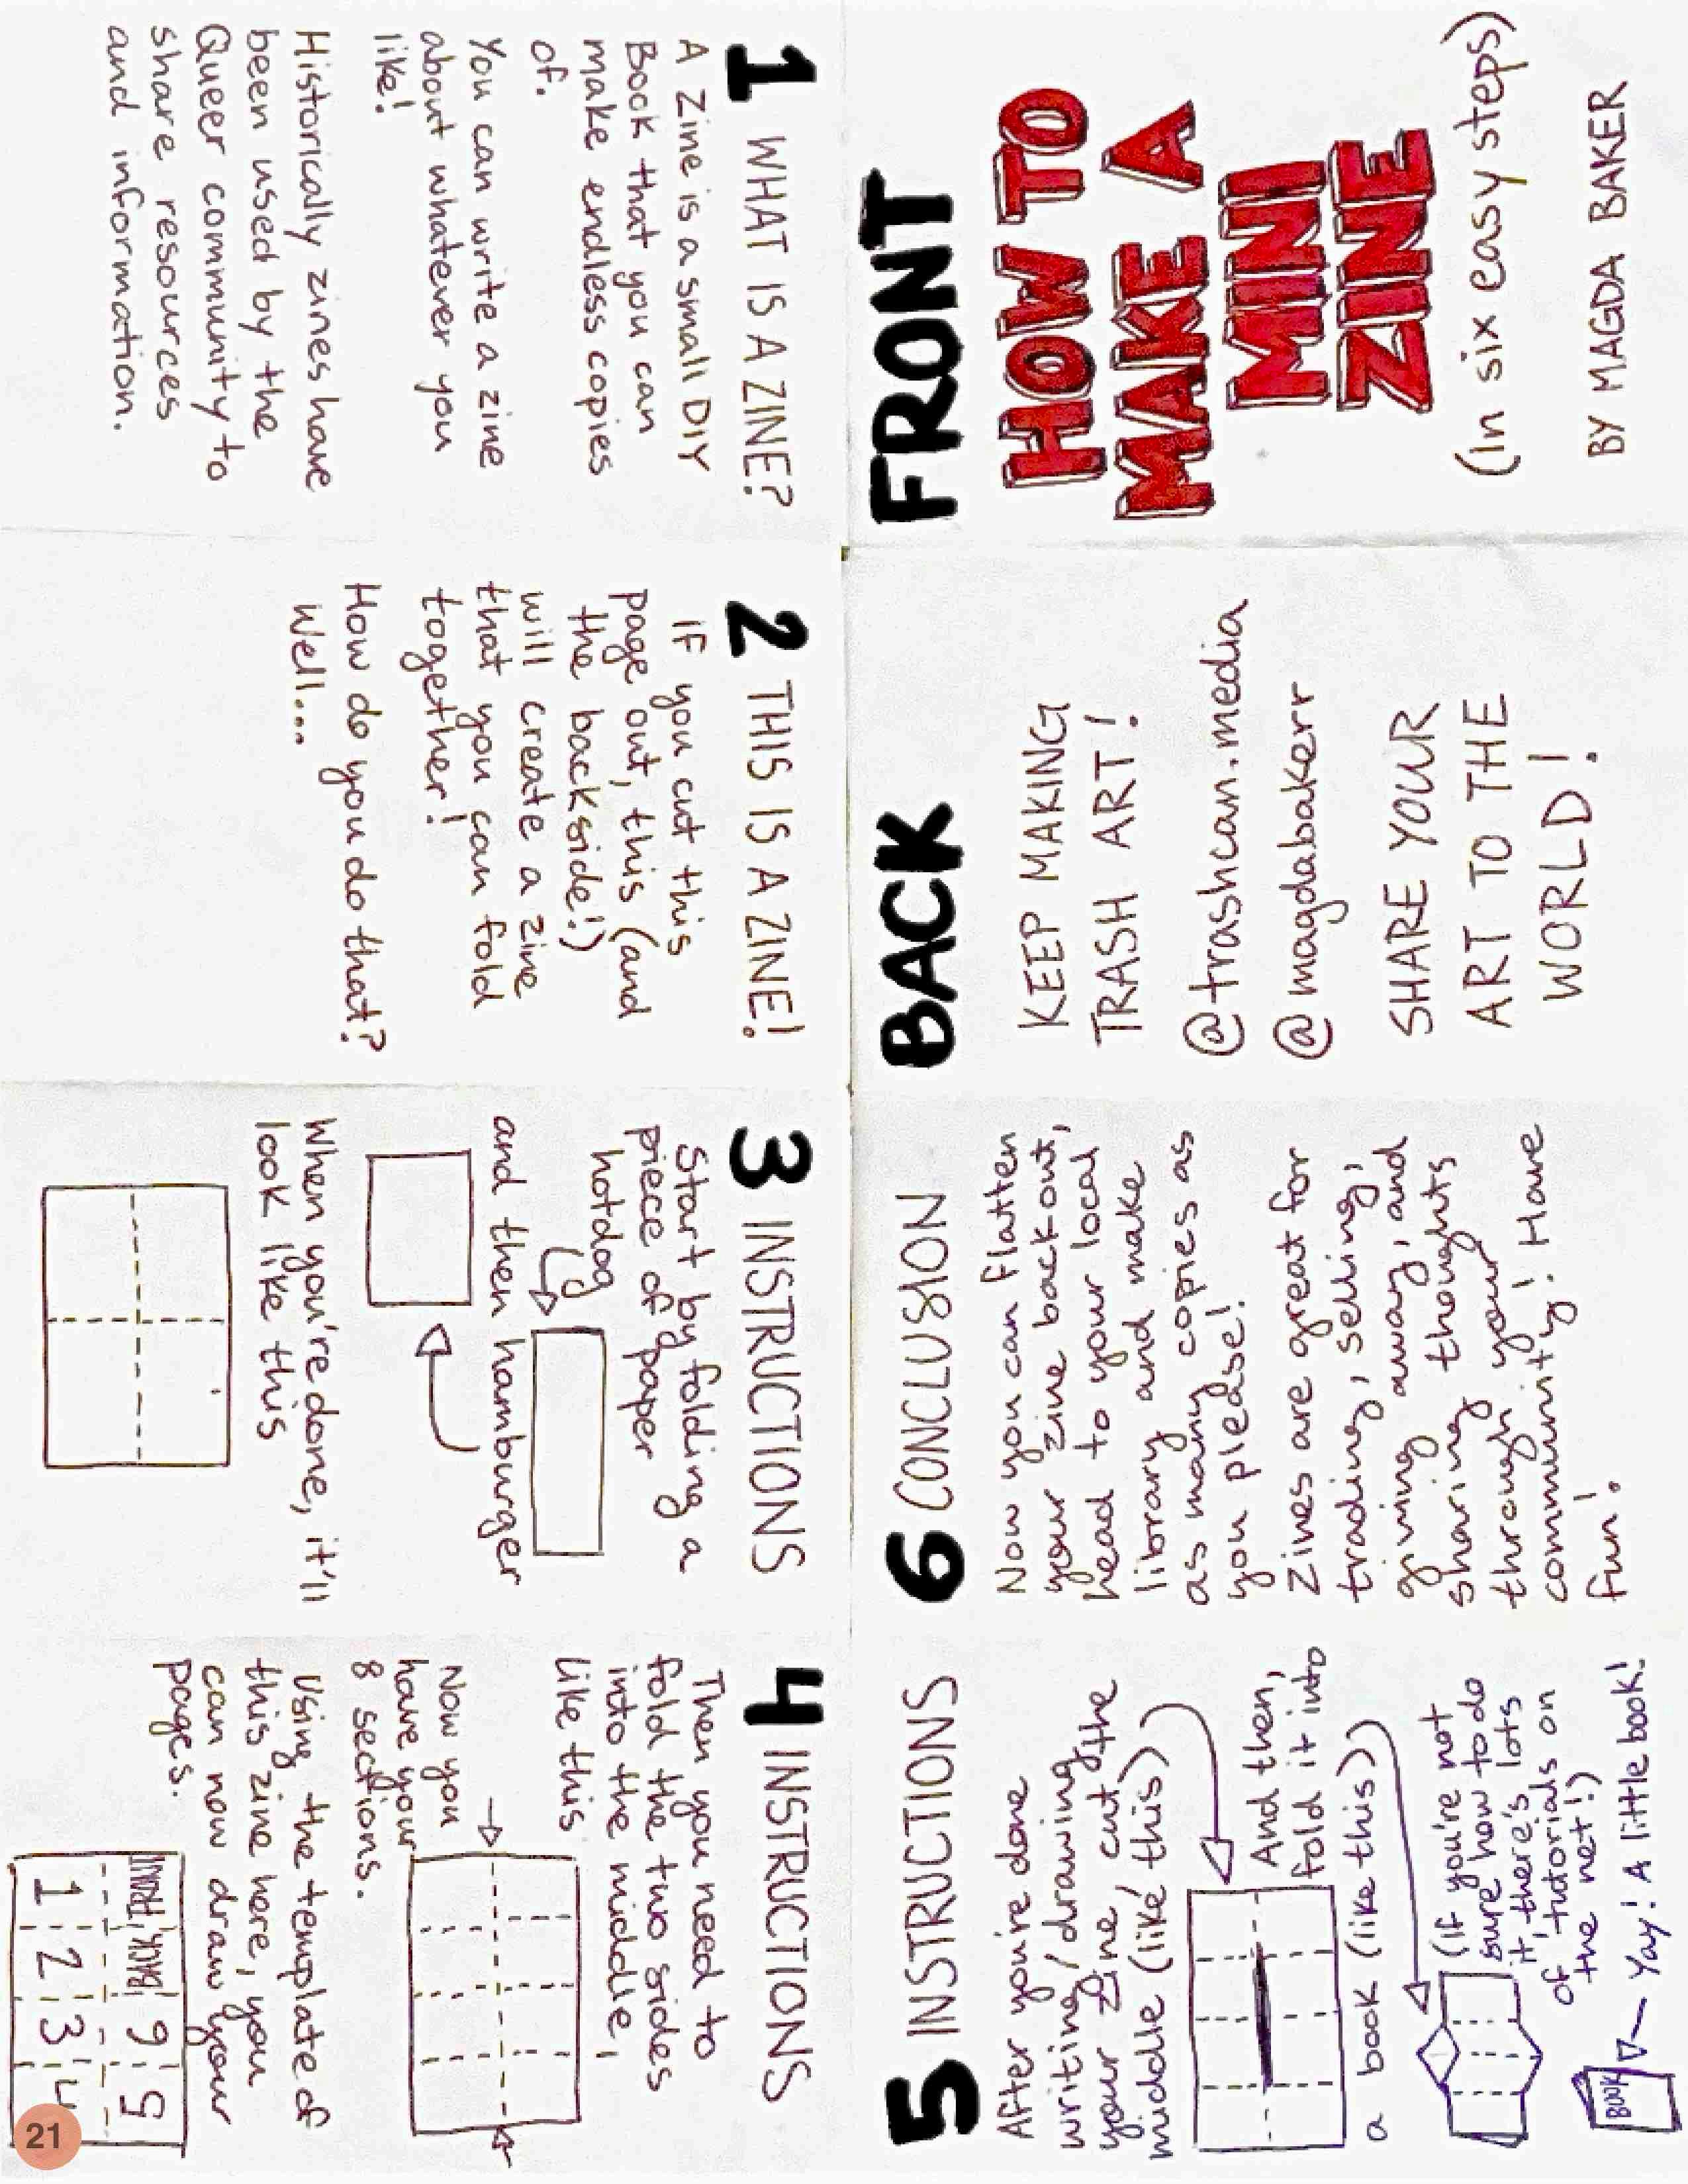 FRONT
HOW TO
MAKE A
MINI
ZINE
(in six easy steps)
BY MAGDA BAKER
1 WHAT IS A ZINE?
A zine is a small DIY
Book that you can
make endless copies
of.
You can write a zine
about whatever you
like!
Historically zines have
been used by the
Queer community to
share resources
and information.
2 THIS IS A ZINE!
IF you cut this
page out, this (and
the backside!)
will create a zine
that you can fold
together!
How do you do that?
Well...
3 INSTRUCTIONS
Start by folding a
piece of paper
hotdog
and then hamburger
When you're done, it'll
look like this
4 INSTRUCTIONS
Then you need to
fold the two sides
into the middle,
like this
Now you
have your
8 sections.
Using the template of
this zine here, you
can now draw your
pages.
FRONT BACK 6 5
1 2 3 4
5 INSTRUCTIONS
After you're done
writing/drawing
your zine, cut the
middle (like this)
And then,
fold it into
a book (like this)
(if you're not
sure how to do
it, there's lots
of tutorials on
the net!)
BOOK
Yay! A little book!
6 CONCLUSION
Now you can flatten
your zine back out,
head to your local
library and make
as many copies as
you please!
Zines are great for
trading, selling,
giving away, and
sharing thoughts
through your
community! Have
fun!
BACK
KEEP MAKING
TRASH ART!
@trashcan.media
@magdabakerr
SHARE YOUR
ART TO THE
WORLD!
21